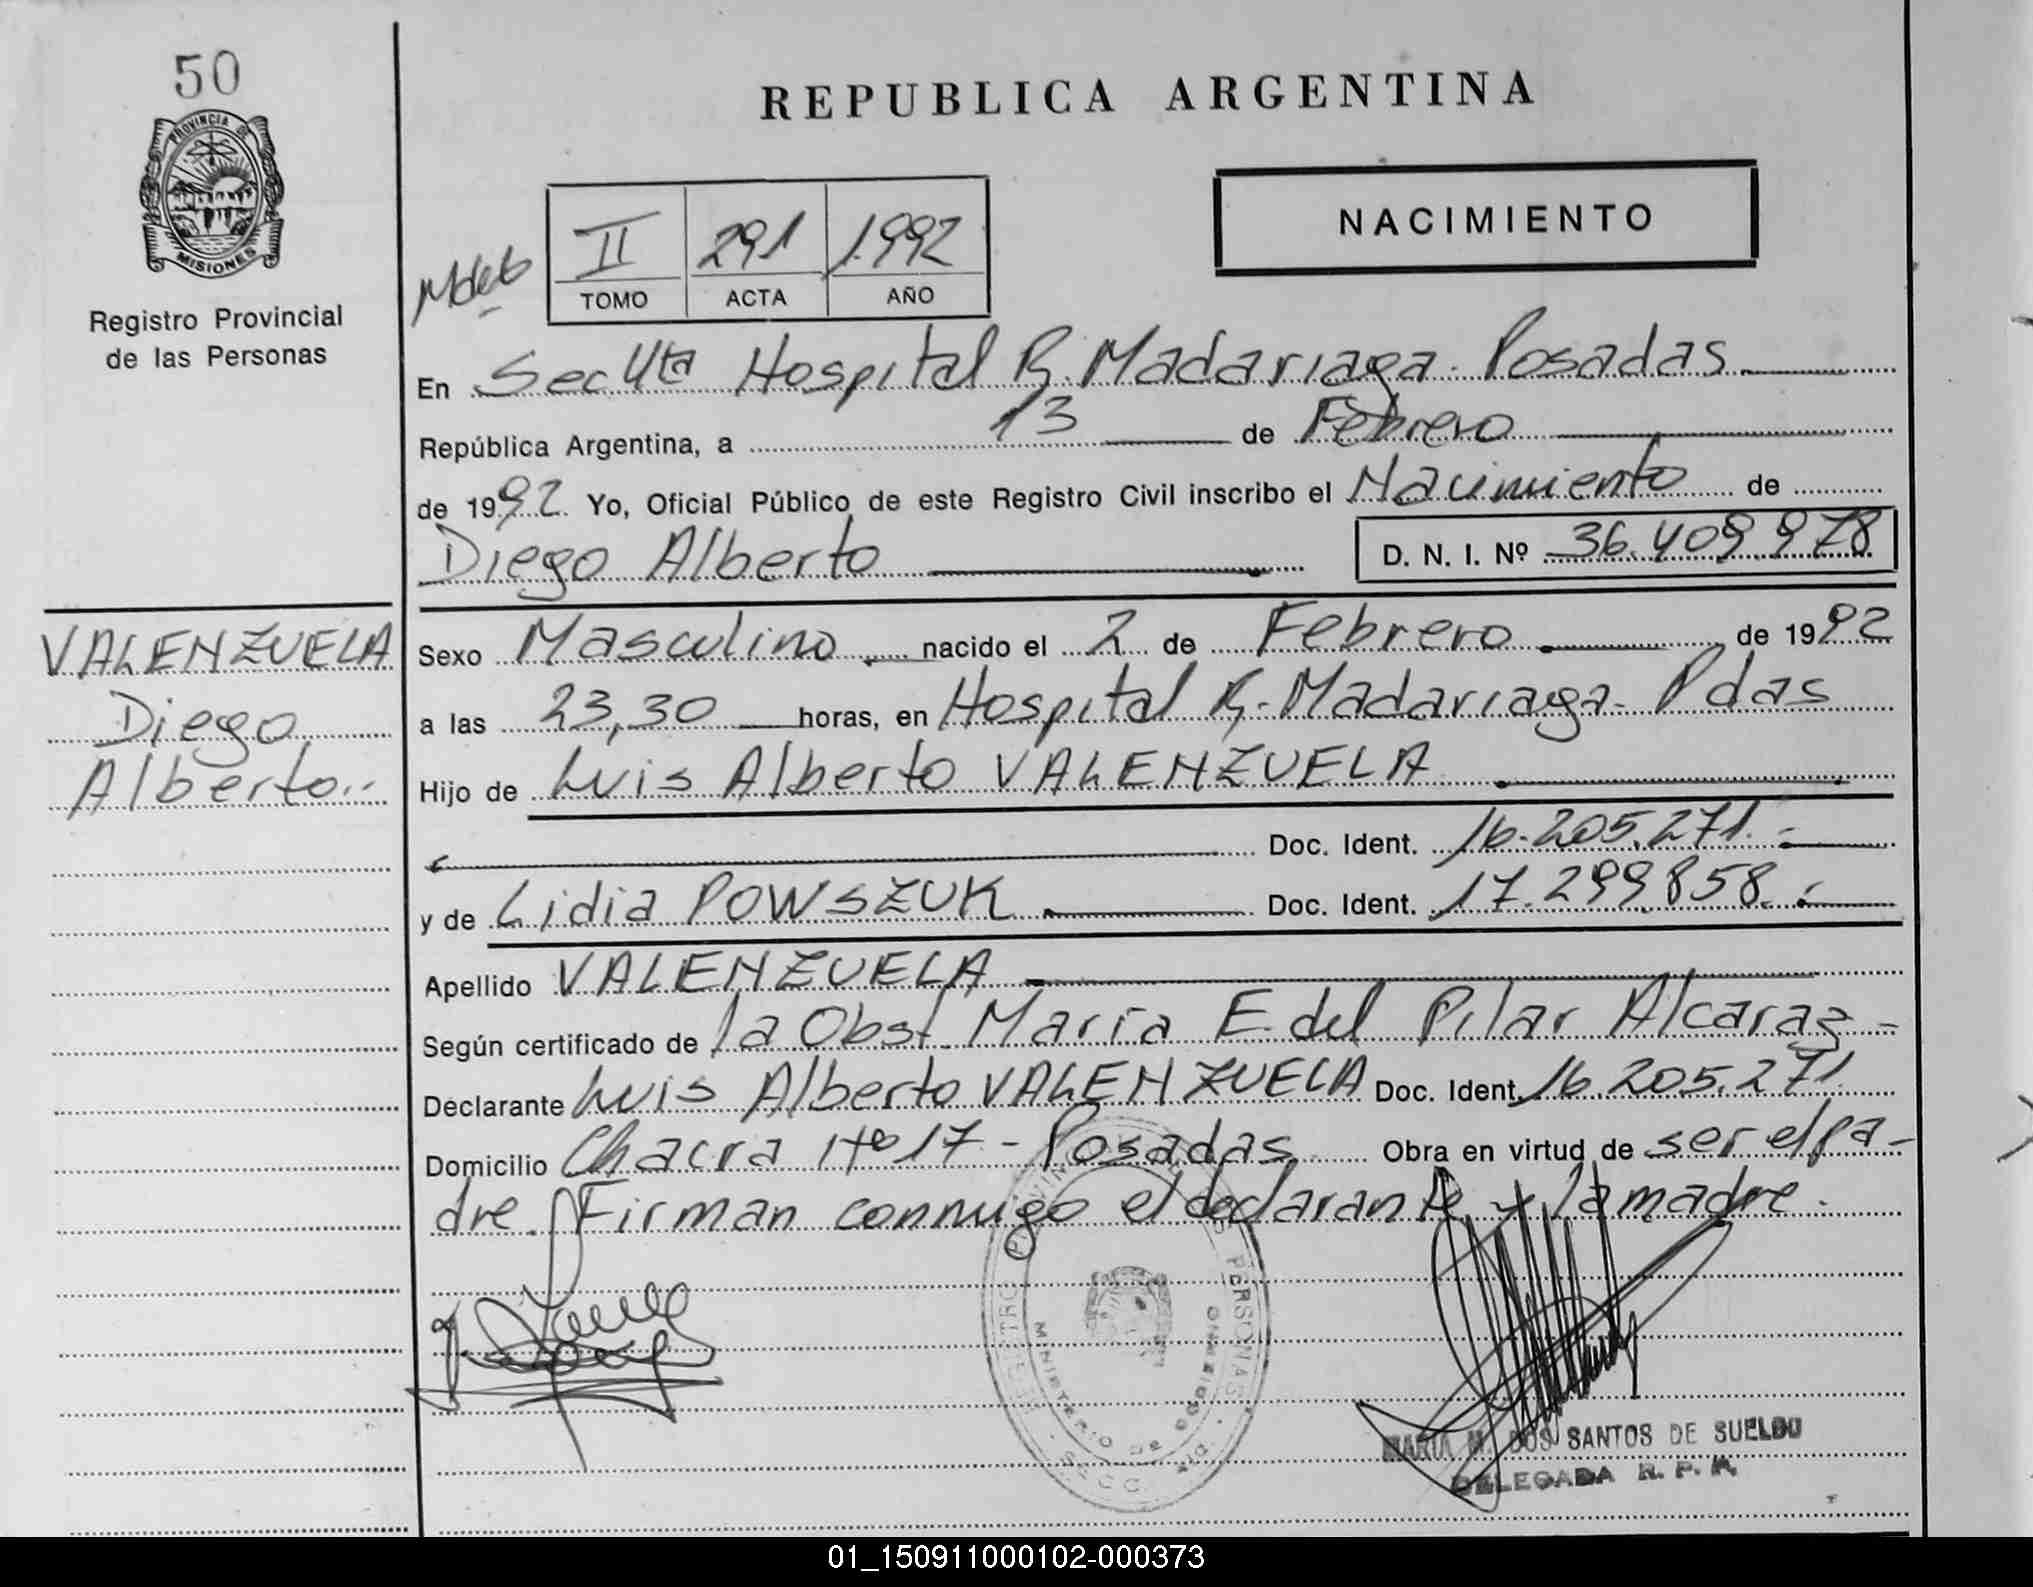 50
PROVINCIA DE
MISIONES
Registro Provincial
de las Personas
REPUBLICA ARGENTINA
NACIMIENTO
II 291 1.992
TOMO ACTA AÑO
En Sec 4ta Hospital R. Madariaga. Posadas
República Argentina, a 13 de Febrero
de 1992 Yo, Oficial Público de este Registro Civil inscribo el Nacimiento de
Diego Alberto D. N. I. Nº 36.409.978
VALENZUELA
Diego
Alberto..
Sexo Masculino nacido el 2 de Febrero de 1992
a las 23,30 horas, en Hospital R. Madariaga - Pdas
Hijo de Luis Alberto VALENZUELA
Doc. Ident. 16.205.271.-
y de Lidia POWSZUK Doc. Ident. 17.299.858.-
Apellido VALENZUELA
Según certificado de la Obst. María E. del Pilar Alcaraz -
Declarante Luis Alberto VALENZUELA Doc. Ident. 16.205.271
Domicilio Chacra Nº 17 - Posadas Obra en virtud de ser el pa-
dre. Firman conmigo el declarante y la madre.
PERSONAS
MINISTERIO DE GOBIERNO
MARIA M. DOS SANTOS DE SUELDO
DELEGADA R. P. P.
01_150911000102-000373